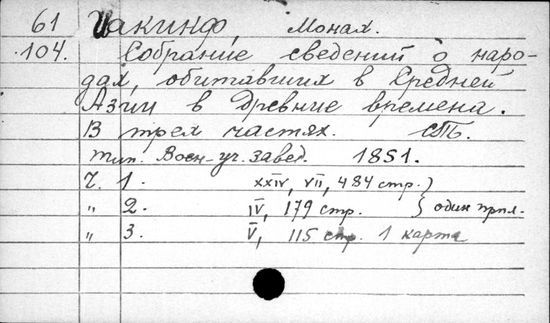 61 Иакинф, Монах.
104. Собрание сведений о наро-
дах, обитавших в Средней
Азии в древние времена.
В трех частях. СПб.
тип. Воен-уч. завед. 1851.
Ч. 1. XXIV, VII, 484 стр. }
„ 2. IV, 179 стр. } один прпл.
„ 3. V, 115 стр. 1 карта